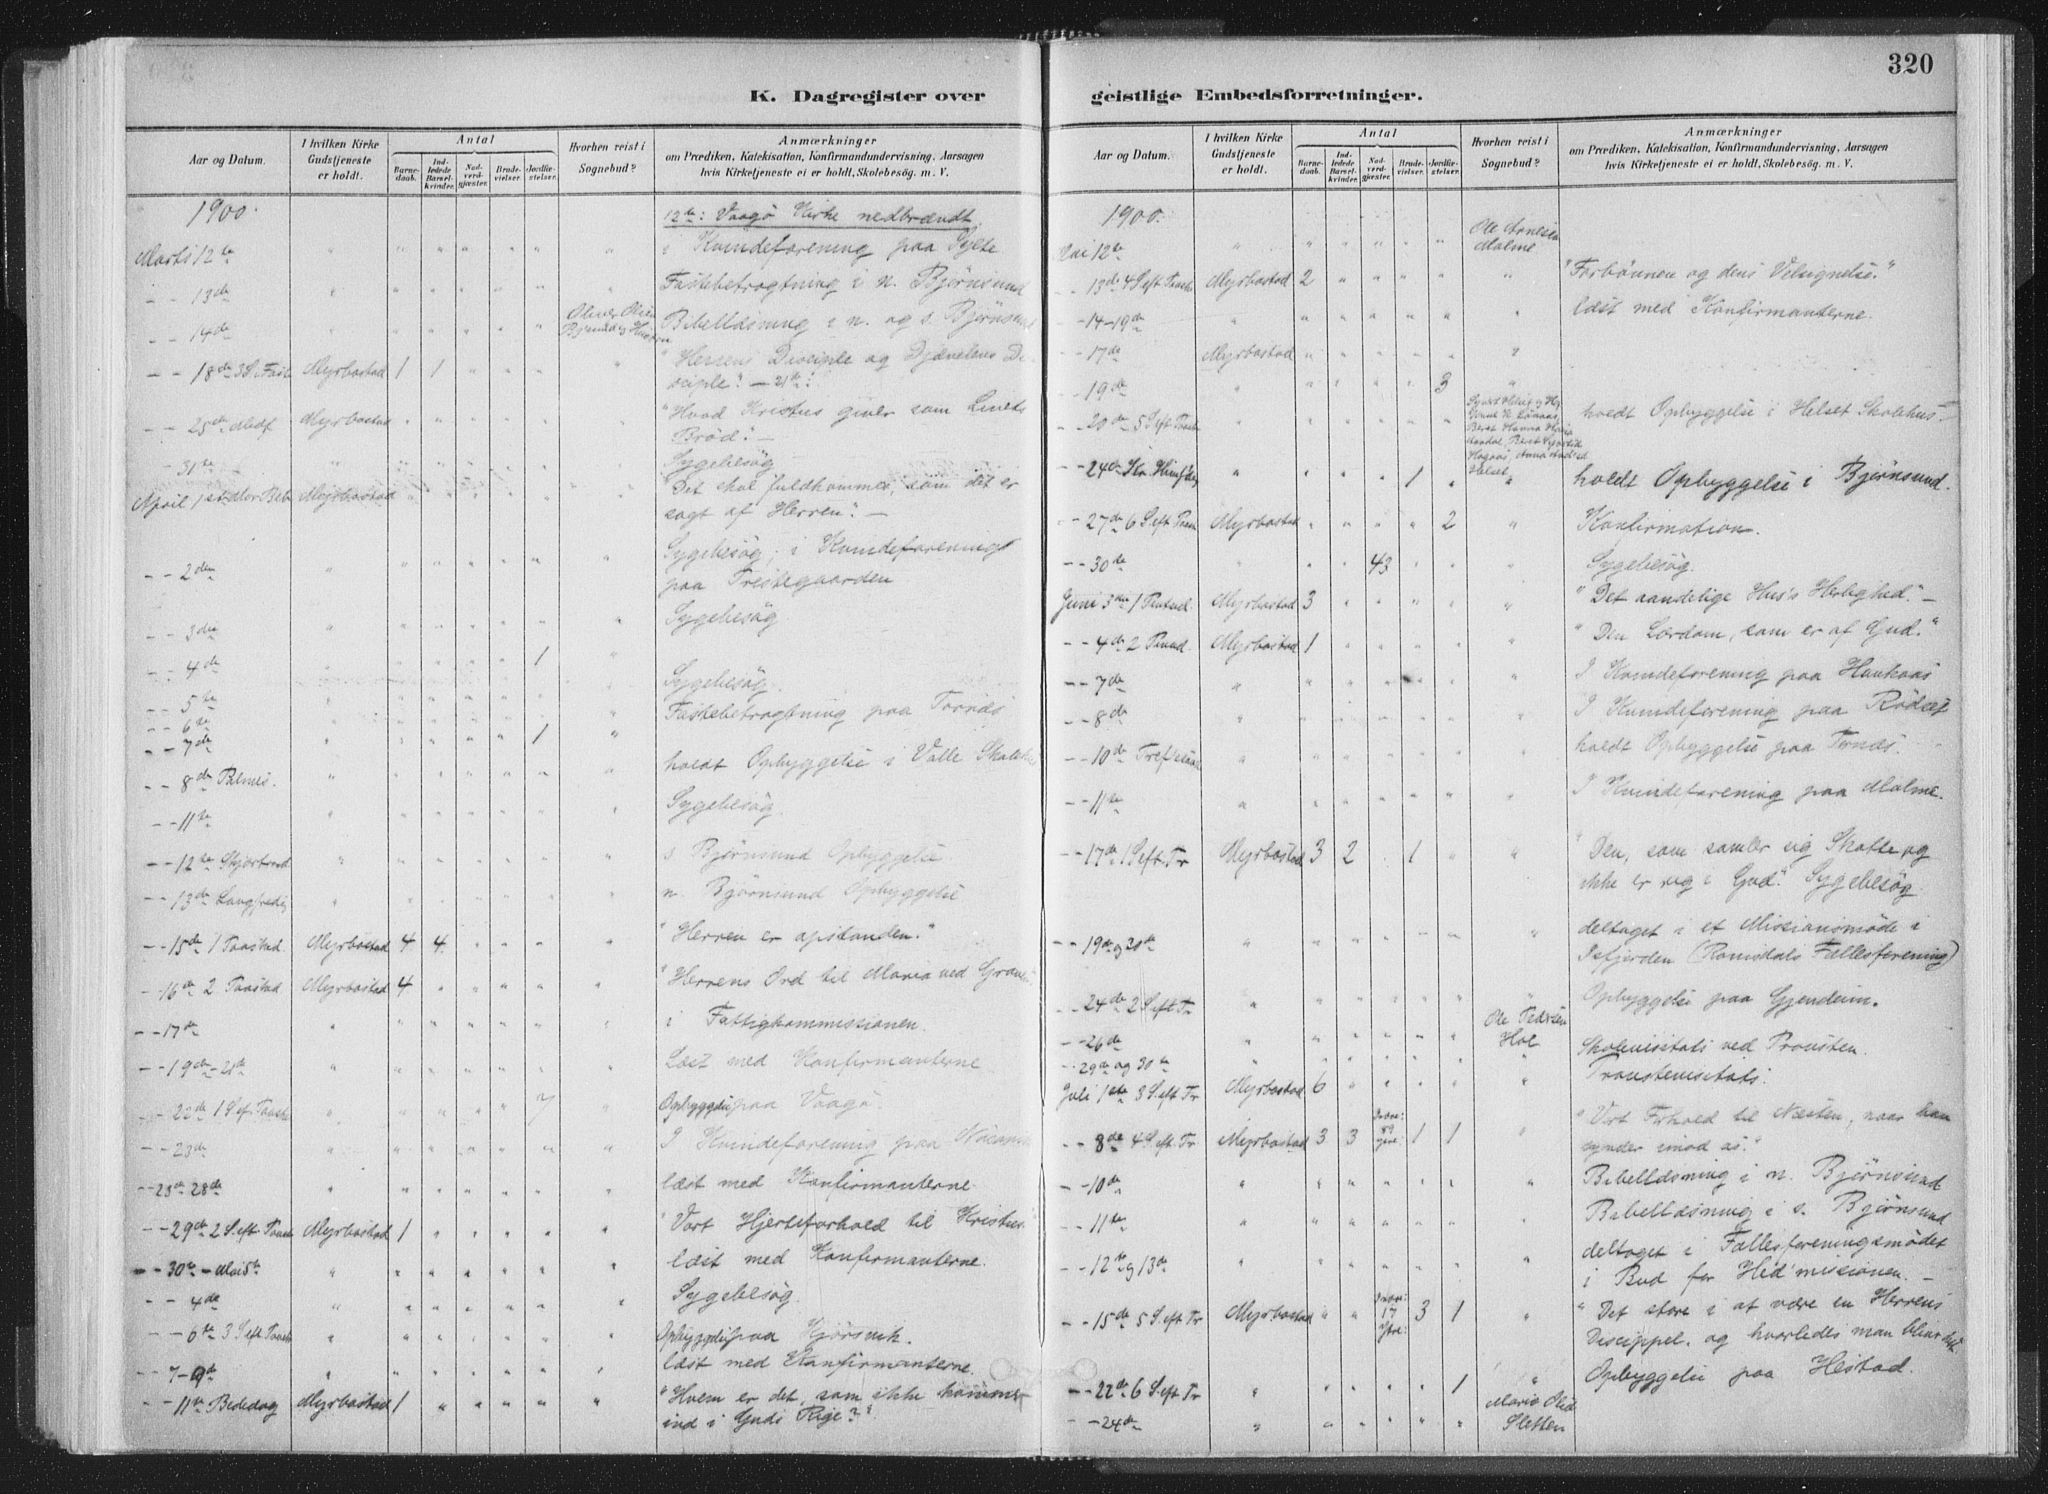 320
K. Dagregister over geistlige Embedsforretninger.
Aar og Datum.
I hvilken Kirke Gudstjeneste er holdt.
Antal
Barnedaab.
Indledede Barselkvinder.
Nadverdgjæster.
Brudevielser.
Jordfæstelser.
Hvorhen reist i Sognebud?
Anmærkninger
om Prædiken, Katekisation, Konfirmandundervisning, Aarsagen
hvis Kirketjeneste ei er holdt, Skolebesög. m. V.
1900.
12te: Vaagö Kirke nedbrændt.
Marts 12te " " " " " " " i Kvindeforening paa Sylte
- - 13de " " " " " " " Fastebetragtning i n. Bjørnsund
- - 14de " " " " " Bibellæsning i n. og s. Bjørnsund
- - 18de 3 S. i Fast Myrbostad 1 1 " " " " "Herrens Disciple og Djævelens Di-
sciple." - 21de:
- - 25de Midf Myrbostad " " " " " " "Hvad Kristus giver som Livets
Bröd." -
- 31te " " " " " " " Sygebesög
April 1ste Mar. Beb Myrbostad " " " " " " "Det skal fuldkommes, som det er
sagt af Herren." -
- - 2den " " " " " " " Sygebesög; i Kvindeforening
paa Prestegaarden
- - 3die " " " " " " " Sygebesög
- - 4de " " " " 1 "
- - 5te " " " " " " Sygebesög.
- - 6te " " " " " " Fastebetragtning paa Tornes
- - 7de " " " " " 1 "
- - 8de Palmes. " " " " " " " holdt Opbyggelse i Valle Skolehus
- - 11te " " " " " " " Sygebesög
- - 12te Skjærtorsd " " " " " " " s. Bjørnsund Opbyggelse
- - 13de Langfredag " " " " " " " n. Bjørnsund Opbyggelse
- - 15de 1 Paasked. Myrbostad 4 4 " " " " "Herren er opstanden."
- - 16de 2 Paaskd Myrbostad 4 " " " " " "Herrens Ord til Maria ved Graven
- - 17de " " " " " " i Fattigkommissionen.
- - 19de - 21de " " " " " " " Læst med Konfirmanterne
- - 22de 1 S. ef. Paaske " " " " " 7 " Opbyggelse paa Vaagö.
- - 23de " " " " " " " I Kvindeforening paa
- - 23de 28de " " " " " " " læst med Konfirmanterne
- - 29de 2 S. eft Paaske Myrbostad 1 " " " " " "Vort Hjerteforhold til Kristus.
- - 30te - Mai 5te " " " " " " " læst med Konfirmanterne.
- - 4de " " " " " " " Sygebesög.
- - 6te 3 S. eft Paaske " " " " " " " Opbyggelse paa Kjørsvik.
- - 7 - 9de " " " " " " " læst med Konfirmanterne.
- - 11te Bededag Myrbostad 1 " " " " " "Hvem er det, som ikke kommer
ind i Guds Rige?"
Aar og Datum.
I hvilken Kirke Gudstjeneste er holdt.
Antal
Barnedaab.
Indledede Barselkvinder.
Nadverdgjæster.
Brudevielser.
Jordfæstelser.
Hvorhen reist i Sognebud?
Anmærkninger
om Prædiken, Katekisation, Konfirmandundervisning, Aarsagen
hvis Kirketjeneste ei er holdt, Skolebesög. m. V.
1900.
Mai 12te " " " " " " Ole Arnesen
Malme
- 13de 4 S eft Paaske Myrbostad 2 " " " " " "Forbönnen og dens Velsignelse."
- - 14-19de " " " " " " " læst med Konfirmanterne.
- - 17de Myrbostad " " " " " "
- - 19de " " " " " 3 "
- - 20de 5 S eft Paaske " " " " " " holdt Opbyggelse i Helset Skolehus. -
- - 24de Kr. Himf.dag " " " " 1 " Helset " holdt Opbyggelse i Bjørnsund.
- - 27de 6 S eft Paaske Myrbostad " " " " 2 " Konfirmation.
- - 30te " " " 43 " " " Sygebesög.
Juni 3die 1 Pintsd. Myrbostad 3 " " " " " "Det aandelige Hus's Herlighed." -
- - 4de 2 Pintsd. Myrbostad 1 " " " " " "Den Lærdom, som er af Gud."
- - 7de " " " " " " " I Kvindeforening paa Haukaas
- - 8de " " " " " " I Kvindeforening paa Rödset
- - 10de Tref. sönd " " " " " " " holdt Opbyggelse paa Tornes.
- - 11te " " " " " " " I Kvindeforening paa Malme.
- - 17de 1 S eft Tr Myrbostad 3 2 " 1 " " "Den, som samler sig Skatte og
ikke er rig i Gud." Sygebesög
- - 19de og 20de " " " " " " " deltaget i et Missionsmöde i
Isfjorden (Romsdals Fællesforening)
- - 24de 2 S eft Tr " " " " " " " Opbyggelse paa Gjendem.
- - 26de " " " " " " Ole Pedersen
Hol
- - 29de og 30te " " " " " " " Skolevisitats ved Provsten.
Juli 1ste 3 S eft Tr Myrbostad 6 " " " " " Provstevisitats.
- - 8de 4 S eft Tr Myrbostad 3 3 89 1 1 " "Vort Forhold til Næsten, naar han
synder imod os."
- - 10de " " " " " " " Bibellæsning i n. Bjørnsund
- - 11te " " " " " " " Bibellæsning i s. Bjørnsund
- - 12te og 13de " " " " " " " deltaget i Fællesforeningsmödet
i Bud for Hed'missionen. -
- - 15de 5 S eft Tr Myrbostad " " 17 3 1 " "Det store i at være en Herrens
Discippel, og hvorledes man bliver det.
- - 22de 6 S eft Tr " " " " " 1 " Opbyggelse paa Hestad.
- - 24de " " " " " " Marie Olsd
Sletten